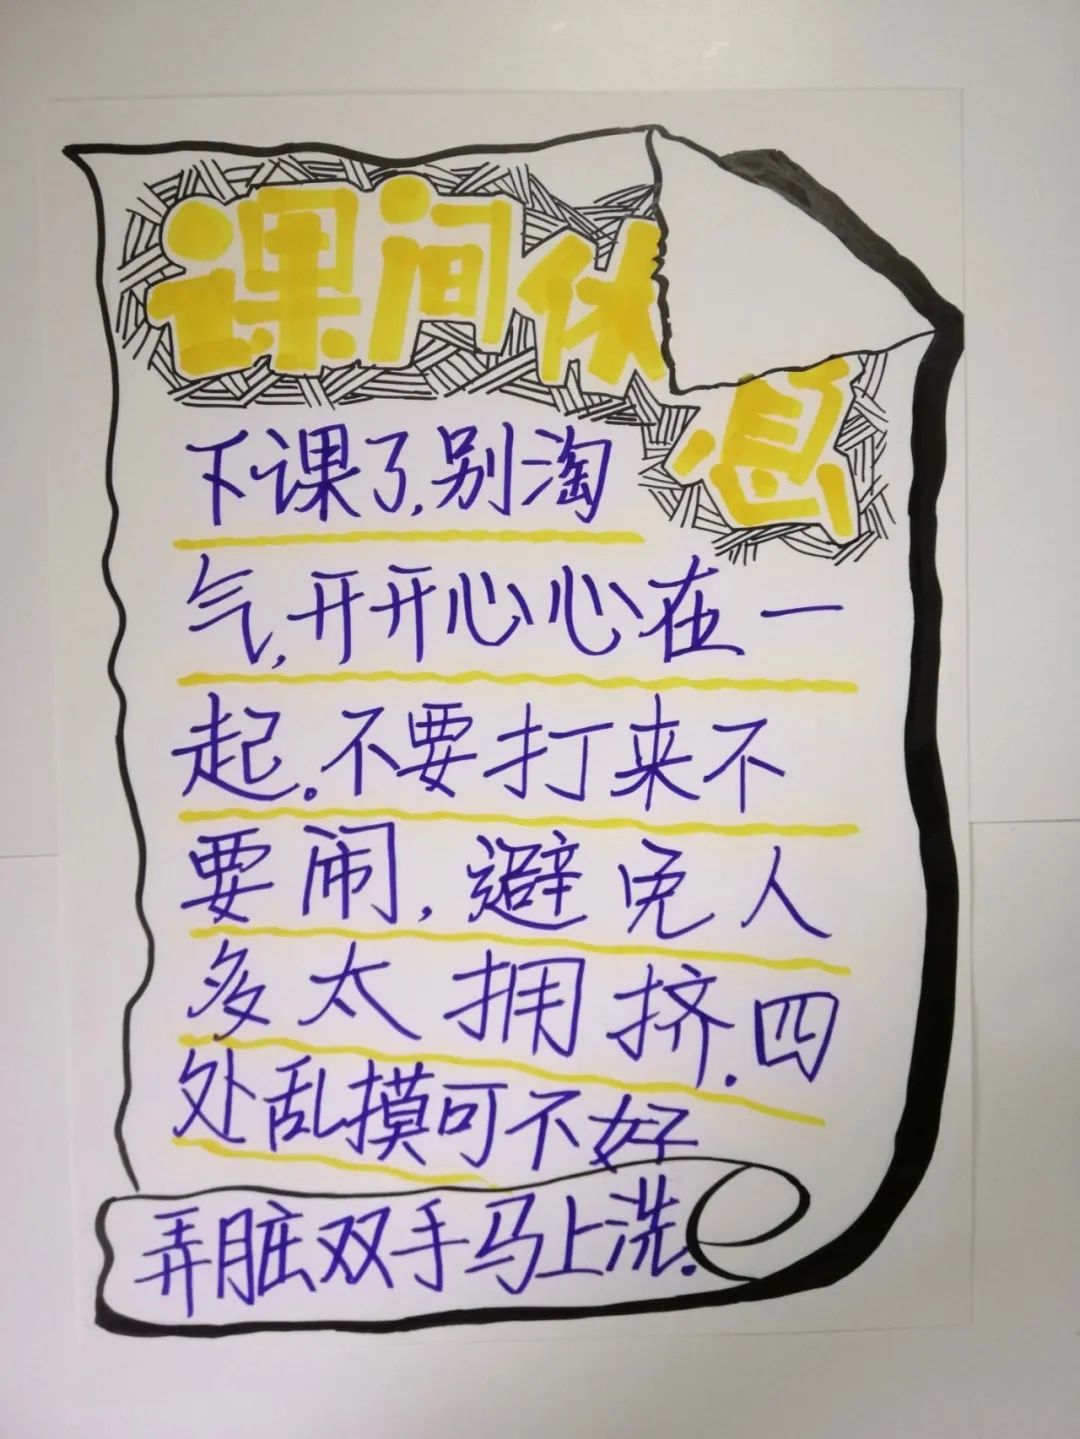 课间休息
下课了,别淘
气,开开心心在一
起.不要打来不
要闹,避免人
多太拥挤.四
处乱摸可不好
弄脏双手马上洗.